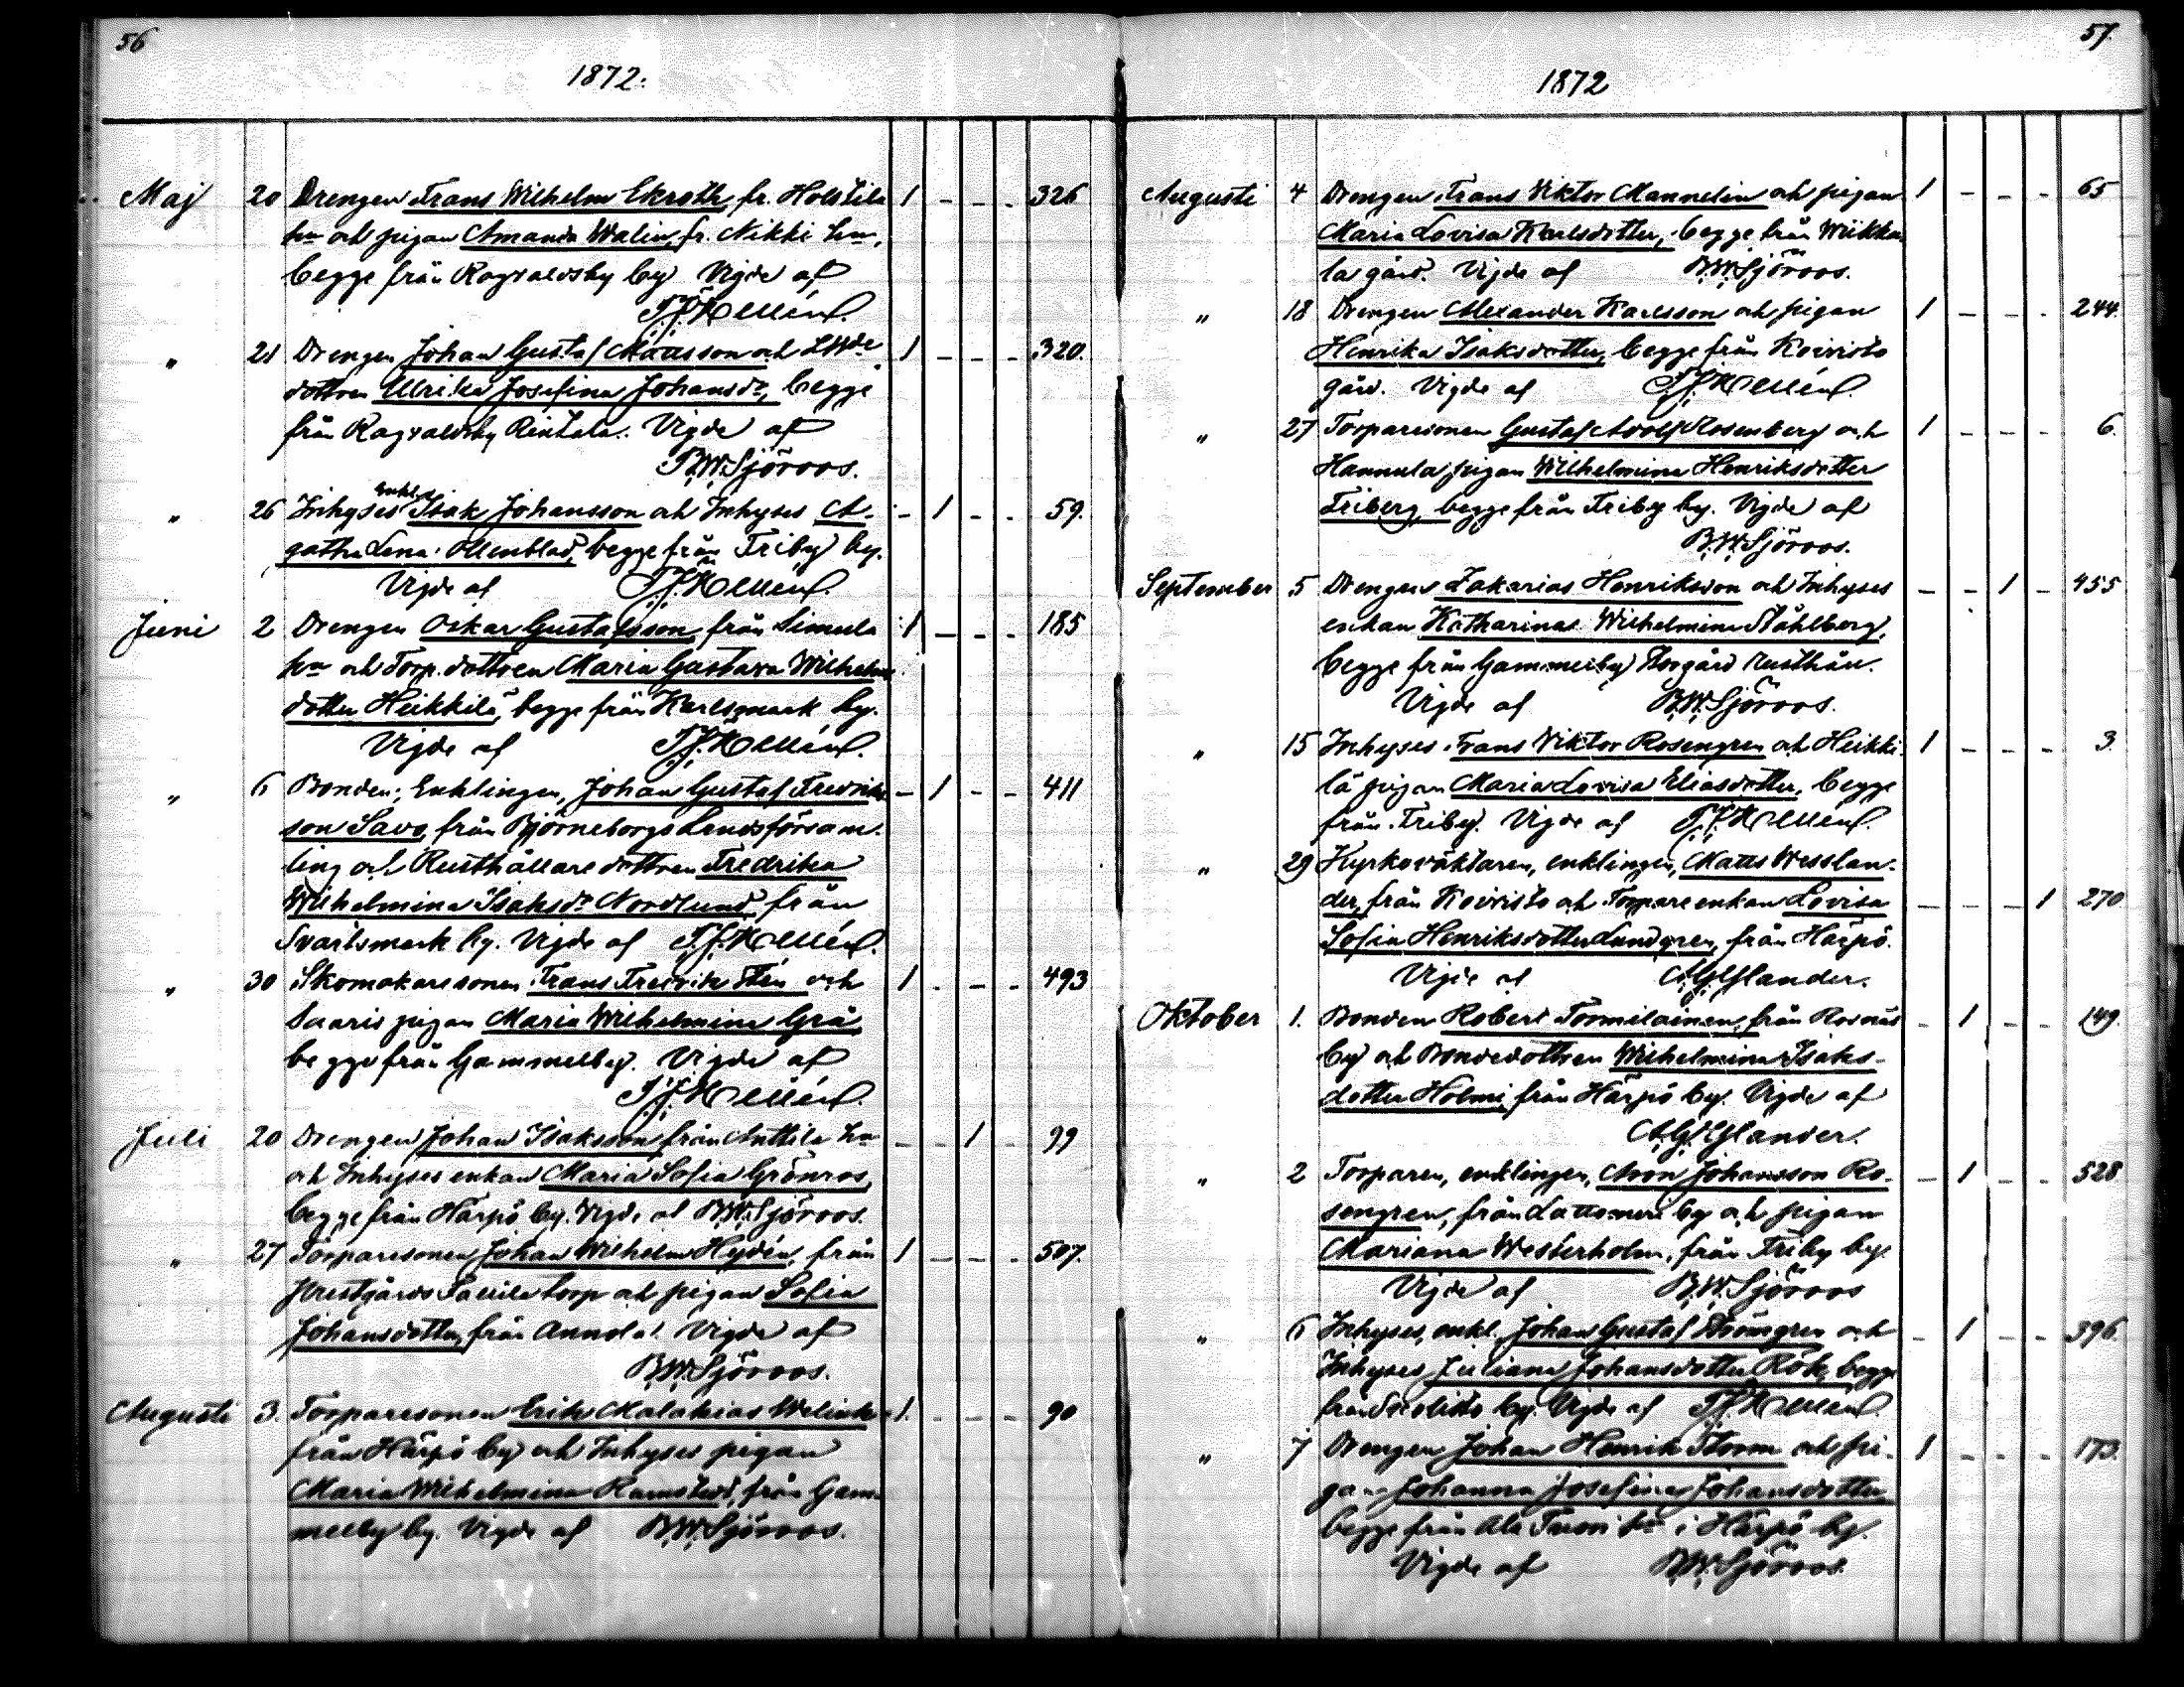 56
1872.
Maj 20 Drengen Frans Wilhelm Ekroth, fr. Holstila 1 - - - 326
hn och pigan Amanda Walin, fr. Nikki hn,
begge från Ragvaldsby by. Vigde af
T. J. Hellén.
" 21 Drengen Johan Gustaf Mattsson och
dottren Ulrika Josefina Johansdr, begge 1 - - - 320.
från Ragvaldsby Rintala. Vigde af
B. W. Sjöroos.
" 26 Inhyses enkl. Isak Johansson och Inhyses A- - 1 - - 59.
gatha Lena Ollenblad, begge från Friby by.
Vigde af T. J. Hellén.
Juni 2 Drengen Oskar Gustafsson från Simula 1 - - - 185
hn och Torp. dottren Maria Gustava Wilhelms
dotter Heikkilä, begge från Karlsmark by.
Vigde af T. J. Hellén.
" 6 Bonden, Enklingen, Johan Gustaf Fredriks- - 1 - - 411
son Savo, från Björneborgs Landsförsam-
ling och Rusthållare dottren Fredrika
Wilhelmina Isaksdr Nordlund från
Svartsmark by. Vigde af T. J. Hellén.
" 30 Skomakaresonen Frans Fredrik Sten och 1 - - - 493
Saaris pigan Maria Wilhelmina Grå
begge från Gammelby. Vigde af
T. J. Hellén.
Juli 20 Drengen Johan Isaksson från Anttila hn - - 1 - 99
och Inhyses enkan Maria Sofia Grönros,
begge från Härpö by. Vigde af B. W. Sjöroos.
" 27 Torparesonen Johan Wilhelm Hydén, från 1 - - - 507.
torp och pigan Sofia
Johansdotter, från Annola. Vigde af
B. W. Sjöroos.
Augusti 3. Torparesonen Erik Malakias 1. - - - 90
från Härpö by och Inhyses pigan
Maria Wilhelmina Ramstedt, från Gam-
melby by. Vigde af B. W. Sjöroos.
57.
1872
Augusti 4 Drengen Frans Viktor Mannelin och pigan 1 - - - 65
Maria Lovisa Karlsdotter, begge från Wiikka-
la gård. Vigde af B. W. Sjöroos.
" 18 Drengen Alexander Karlsson och pigan 1 - - - 244.
Henrika Isaksdotter, begge från Koivisto
gård. Vigde af T. J. Hellén.
" 27 Torparesonen Gustaf Adolf Rosenberg och 1 - - - 6.
Hannula pigan Wilhelmina Henriksdotter
Friberg, begge från Friby by. Vigde af
B. W. Sjöroos.
September 5 Drengen Zakarias Henriksson och Inhyses - - 1 - 455
enkan Katharina Wilhelmina Ståhlberg,
begge från Gammelby Storgård rusthåll.
Vigde af B. W. Sjöroos.
" 15 Inhyses Frans Viktor Rosengren och Heikki- 1 - - - 3
lä pigan Maria Lovisa Eliasdotter, begge
från Friby. Vigde af T. J. Hellén.
" 29 Kyrkoväktaren, enklingen, Matts Wesslan-
der, från Koivisto och Torpare enkan Lovisa - - - 1 270
Sofia Henriksdotter Lundgren, från Härpö.
Vigde af A. G. Glander.
Oktober 1. Bonden Robert Tommilainen från Rosnäs - 1 - - 149.
by och Bondedottren Wilhelmina Isaks-
dotter Holmi från Härpö by. Vigde af
A. G. Glander.
" 2 Torparen, enklingen, Aron Johansson Ro- - 1 - - 528
sengren, från Lattomeri by och pigan
Mariana Westerholm, från Friby by.
Vigde af B. W. Sjöroos
" 6 Inhyses, enkl. Johan Gustaf Strömgren och - 1 - - 396.
Inhyses Juliana Johansdotter Rök, begge
från by. Vigde af T. J. Hellén.
" 7 Drengen Johan Henrik Storm och pi- 1 - - - 173.
gan Johanna Josefina Johansdotter,
begge från Ala hn i Härpö by.
Vigde af B. W. Sjöroos.